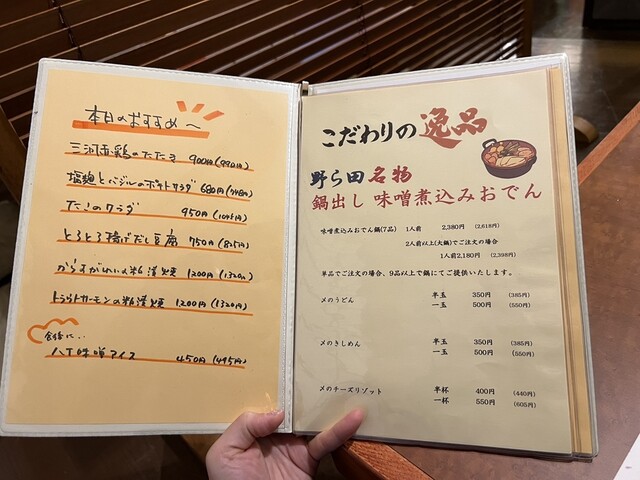 本日のおすすめ〜
三河赤鶏のたたき 900円(990円)
塩麹とバジルのポテトサラダ 680円(748円)
たこのサラダ 950円(1045円)
とろとろ揚げだし豆腐 750円(825円)
からすがれいの粕漬焼 1200円(1320円)
トラウトサーモンの粕漬焼 1200円(1320円)
食後に..
八丁味噌アイス 450円(495円)
こだわりの逸品
野ら田名物
鍋出し味噌煮込みおでん
味噌煮込みおでん鍋(7品) 1人前 2,380円 (2,618円)
2人前以上(大鍋)でご注文の場合
1人前2,180円 (2,398円)
単品でご注文の場合、9品以上で鍋にてご提供いたします。
〆のうどん 半玉 350円 (385円)
一玉 500円 (550円)
〆のきしめん 半玉 350円 (385円)
一玉 500円 (550円)
〆のチーズリゾット 半杯 400円 (440円)
一杯 550円 (605円)